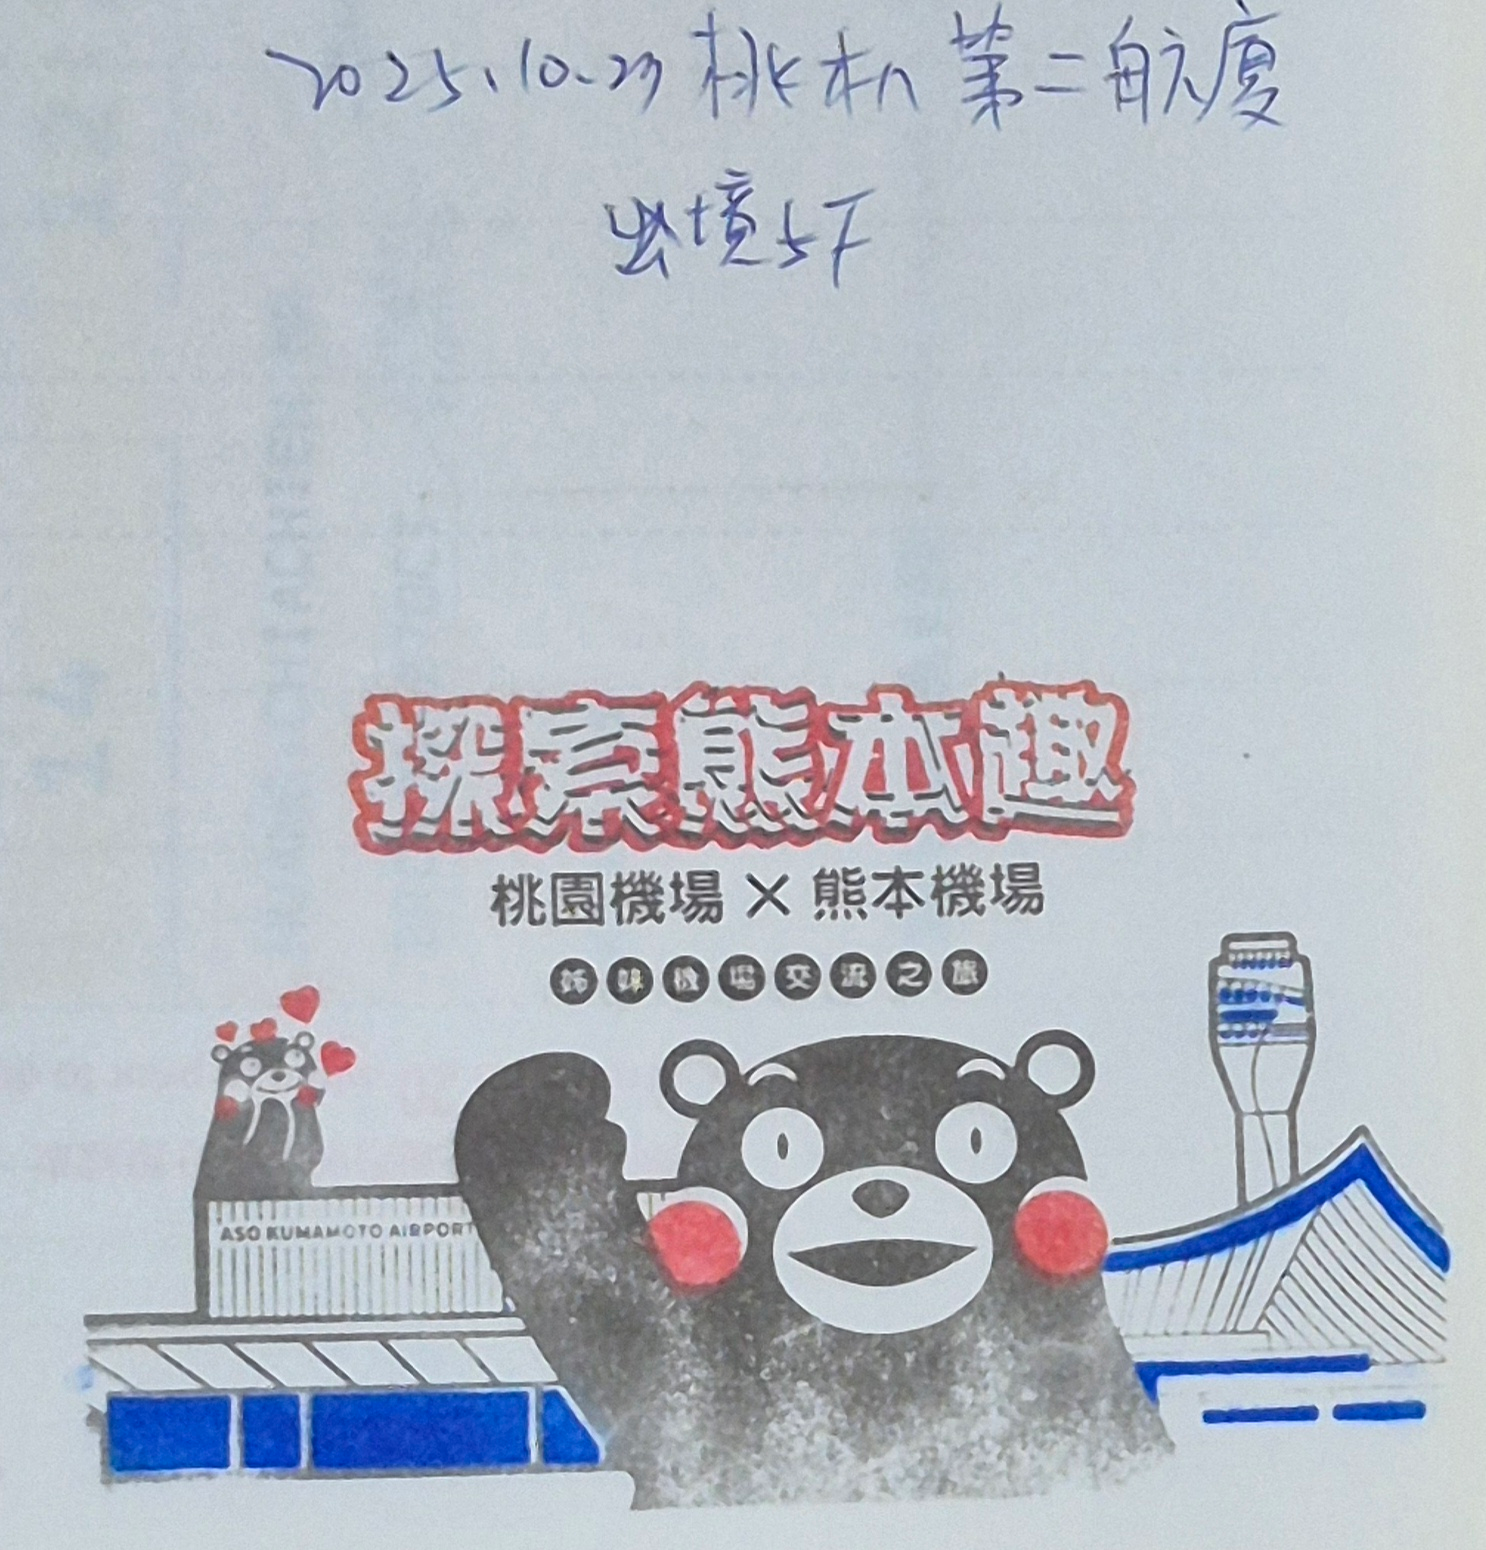 2025.10.23 桃机 第二航廈
出境5F
探索熊本趣
桃園機場 × 熊本機場
姊妹機場交流之旅
ASO KUMAMOTO AIRPORT